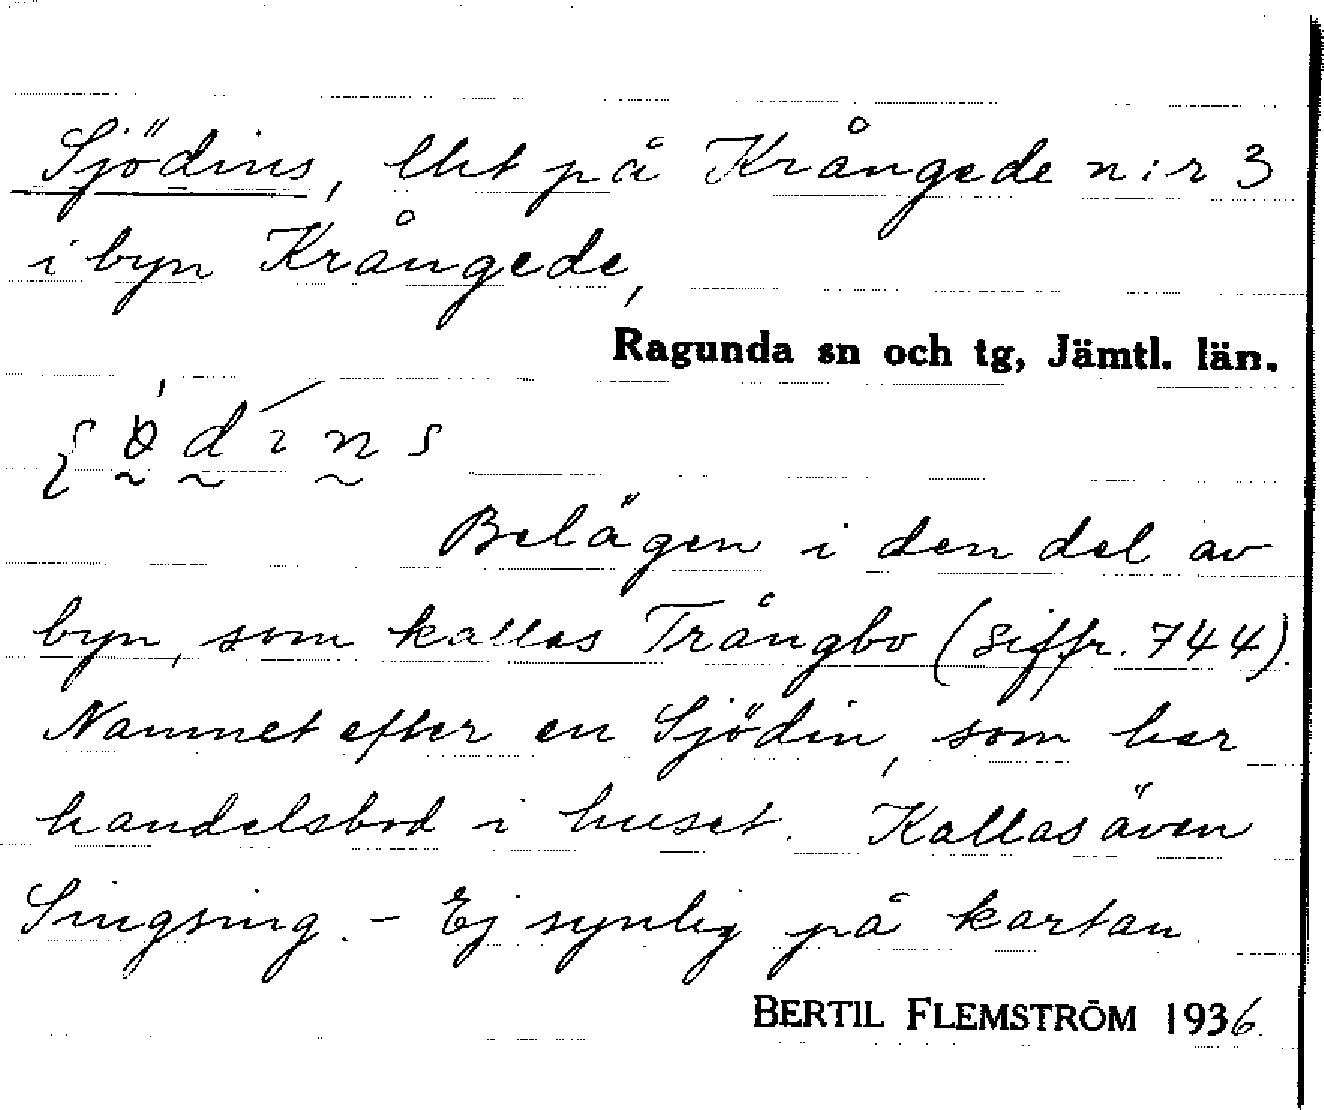 Sjödins, lht på Krångede n:r 3
i byn Krångede,
Ragunda sn och tg, Jämtl. län.
Belägen i den del av
byn, som kallas Trångbo (siffr. 744).
Namnet efter en Sjödin, som har
handelsbod i huset. Kallas även
Singsing. – Ej synlig på kartan.
BERTIL FLEMSTRÖM 1936.